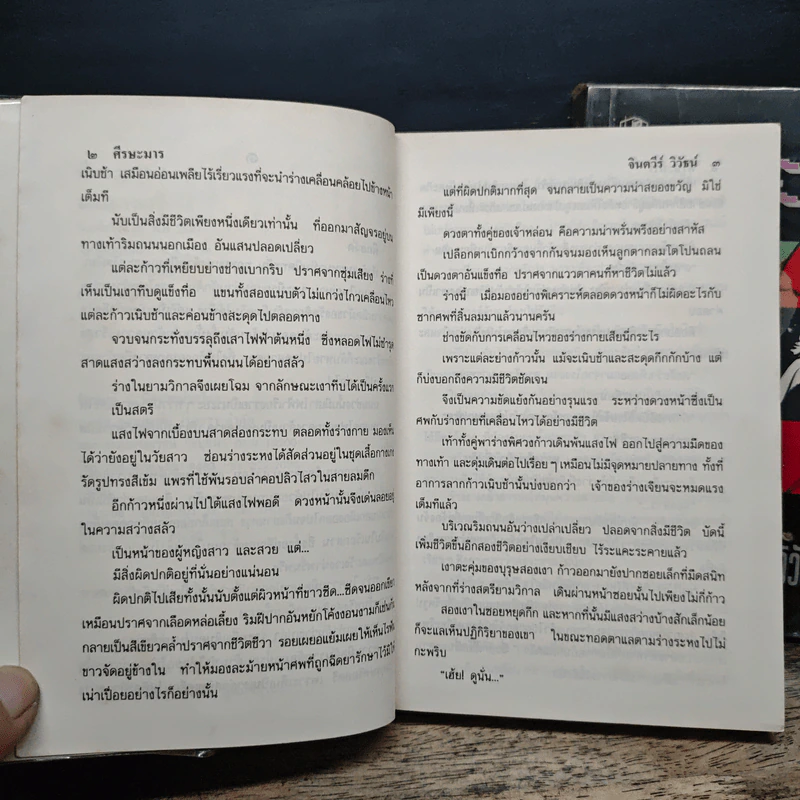 ๒ ศีรษะมาร
เนิบช้า เสมือนอ่อนเพลียไร้เรี่ยวแรงที่จะนำร่างเคลื่อนคล้อยไปข้างหน้า
เต็มที
นับเป็นสิ่งมีชีวิตเพียงหนึ่งเดียวเท่านั้น ที่ออกมาสัญจรอยู่บน
ทางเท้าริมถนนนอกเมือง อันแสนปลอดเปลี่ยว
แต่ละก้าวที่เหยียบย่างช่างเบากริบ ปราศจากซุ่มเสียง ร่างที่
เห็นเป็นเงาทึบดูแข็งทื่อ แขนทั้งสองแนบตัวไม่แกว่งไกวเคลื่อนไหว
แต่ละก้าวเนิบช้าและค่อนข้างสะดุดไปตลอดทาง
จวบจนกระทั่งบรรลุถึงเสาไฟฟ้าต้นหนึ่ง ซึ่งหลอดไฟไม่ชำรุด
สาดแสงสว่างลงกระทบพื้นถนนได้อย่างสลัว
ร่างในยามวิกาลจึงเผยโฉม จากลักษณะเงาทึบได้เป็นครั้งแรก
เป็นสตรี
แสงไฟจากเบื้องบนสาดส่องกระทบ ตลอดทั้งร่างกาย มองเห็น
ได้ว่ายังอยู่ในวัยสาว ซ่อนร่างระหงได้สัดส่วนอยู่ในชุดเสื้อกางเกง
รัดรูปทรงสีเข้ม แพรที่ใช้พันรอบลำคอปลิวไสวในสายลมดึก
อีกก้าวหนึ่งผ่านไปใต้แสงไฟพอดี ดวงหน้านั้นจึงเด่นลอยอยู่
ในความสว่างสลัว
เป็นหน้าของผู้หญิงสาว และสวย แต่...
มีสิ่งผิดปกติอยู่ที่นั่นอย่างแน่นอน
ผิดปกติไปเสียทั้งนั้นนับตั้งแต่ผิวหน้าที่ขาวซีด...ซีดจนออกเขียว
เหมือนปราศจากเลือดหล่อเลี้ยง ริมฝีปากอันหยักโค้งงอนงามก็เช่นกัน
กลายเป็นสีเขียวคล้ำปราศจากชีวิตชีวา รอยเผยอแย้มเผยให้เห็นไรฟัน
ขาวจัดอยู่ข้างใน ทำให้มองละม้ายหน้าศพที่ถูกฉีดยารักษาไว้มิให้
เน่าเปื่อยอย่างไรก็อย่างนั้น
จินตวีร์ วิวัธน์ ๓
แต่ที่ผิดปกติมากที่สุด จนกลายเป็นความน่าสยองขวัญ มิใช่
มีเพียงนี้
ดวงตาทั้งคู่ของเจ้าหล่อน คือความน่าพรั่นพรึงอย่างสาหัส
เปลือกตาเบิกกว้างจากกันจนมองเห็นลูกตากลมโตโปนถลน
เป็นดวงตาอันแข็งทื่อ ปราศจากแววตาคนที่หาชีวิตไม่แล้ว
ร่างนี้ เมื่อมองอย่างพิเคราะห์ตลอดดวงหน้าก็ไม่ผิดอะไรกับ
ซากศพที่สิ้นลมมาแล้วนานครัน
ช่างขัดกับการเคลื่อนไหวของร่างกายเสียนี่กระไร
เพราะแต่ละย่างก้าวนั้น แม้จะเนิบช้าและสะดุดกึกกักบ้าง แต่
ก็บ่งบอกถึงความมีชีวิตชัดเจน
จึงเป็นความขัดแย้งกันอย่างรุนแรง ระหว่างดวงหน้าซึ่งเป็น
ศพกับร่างกายที่เคลื่อนไหวได้อย่างมีชีวิต
เท้าทั้งคู่พาร่างพิศวงก้าวเดินพ้นแสงไฟ ออกไปสู่ความมืดของ
ทางเท้า และดุ่มเดินต่อไปเรื่อย ๆ เหมือนไม่มีจุดหมายปลายทาง ทั้งที่
อาการลากก้าวเนิบช้านั้นบ่งบอกว่า เจ้าของร่างเจียนจะหมดแรง
เต็มทีแล้ว
บริเวณริมถนนอันว่างเปล่าเปลี่ยว ปลอดจากสิ่งมีชีวิต บัดนี้
เพิ่มชีวิตขึ้นอีกสองชีวิตอย่างเงียบเชียบ ไร้ระแคะระคายแล้ว
เงาตะคุ่มของบุรุษสองเงา ก้าวออกมายังปากซอยเล็กที่มืดสนิท
หลังจากที่ร่างสตรียามวิกาล เดินผ่านหน้าซอยนั้นไปเพียงไม่กี่ก้าว
สองเงาในซอยหยุดกึก และหากที่นั้นมีแสงสว่างบ้างสักเล็กน้อย
ก็จะแลเห็นปฏิกิริยาของเขา ในขณะทอดตาแลตามร่างระหงไปไม่
กะพริบ
"เฮ้ย! ดูนั่น..."